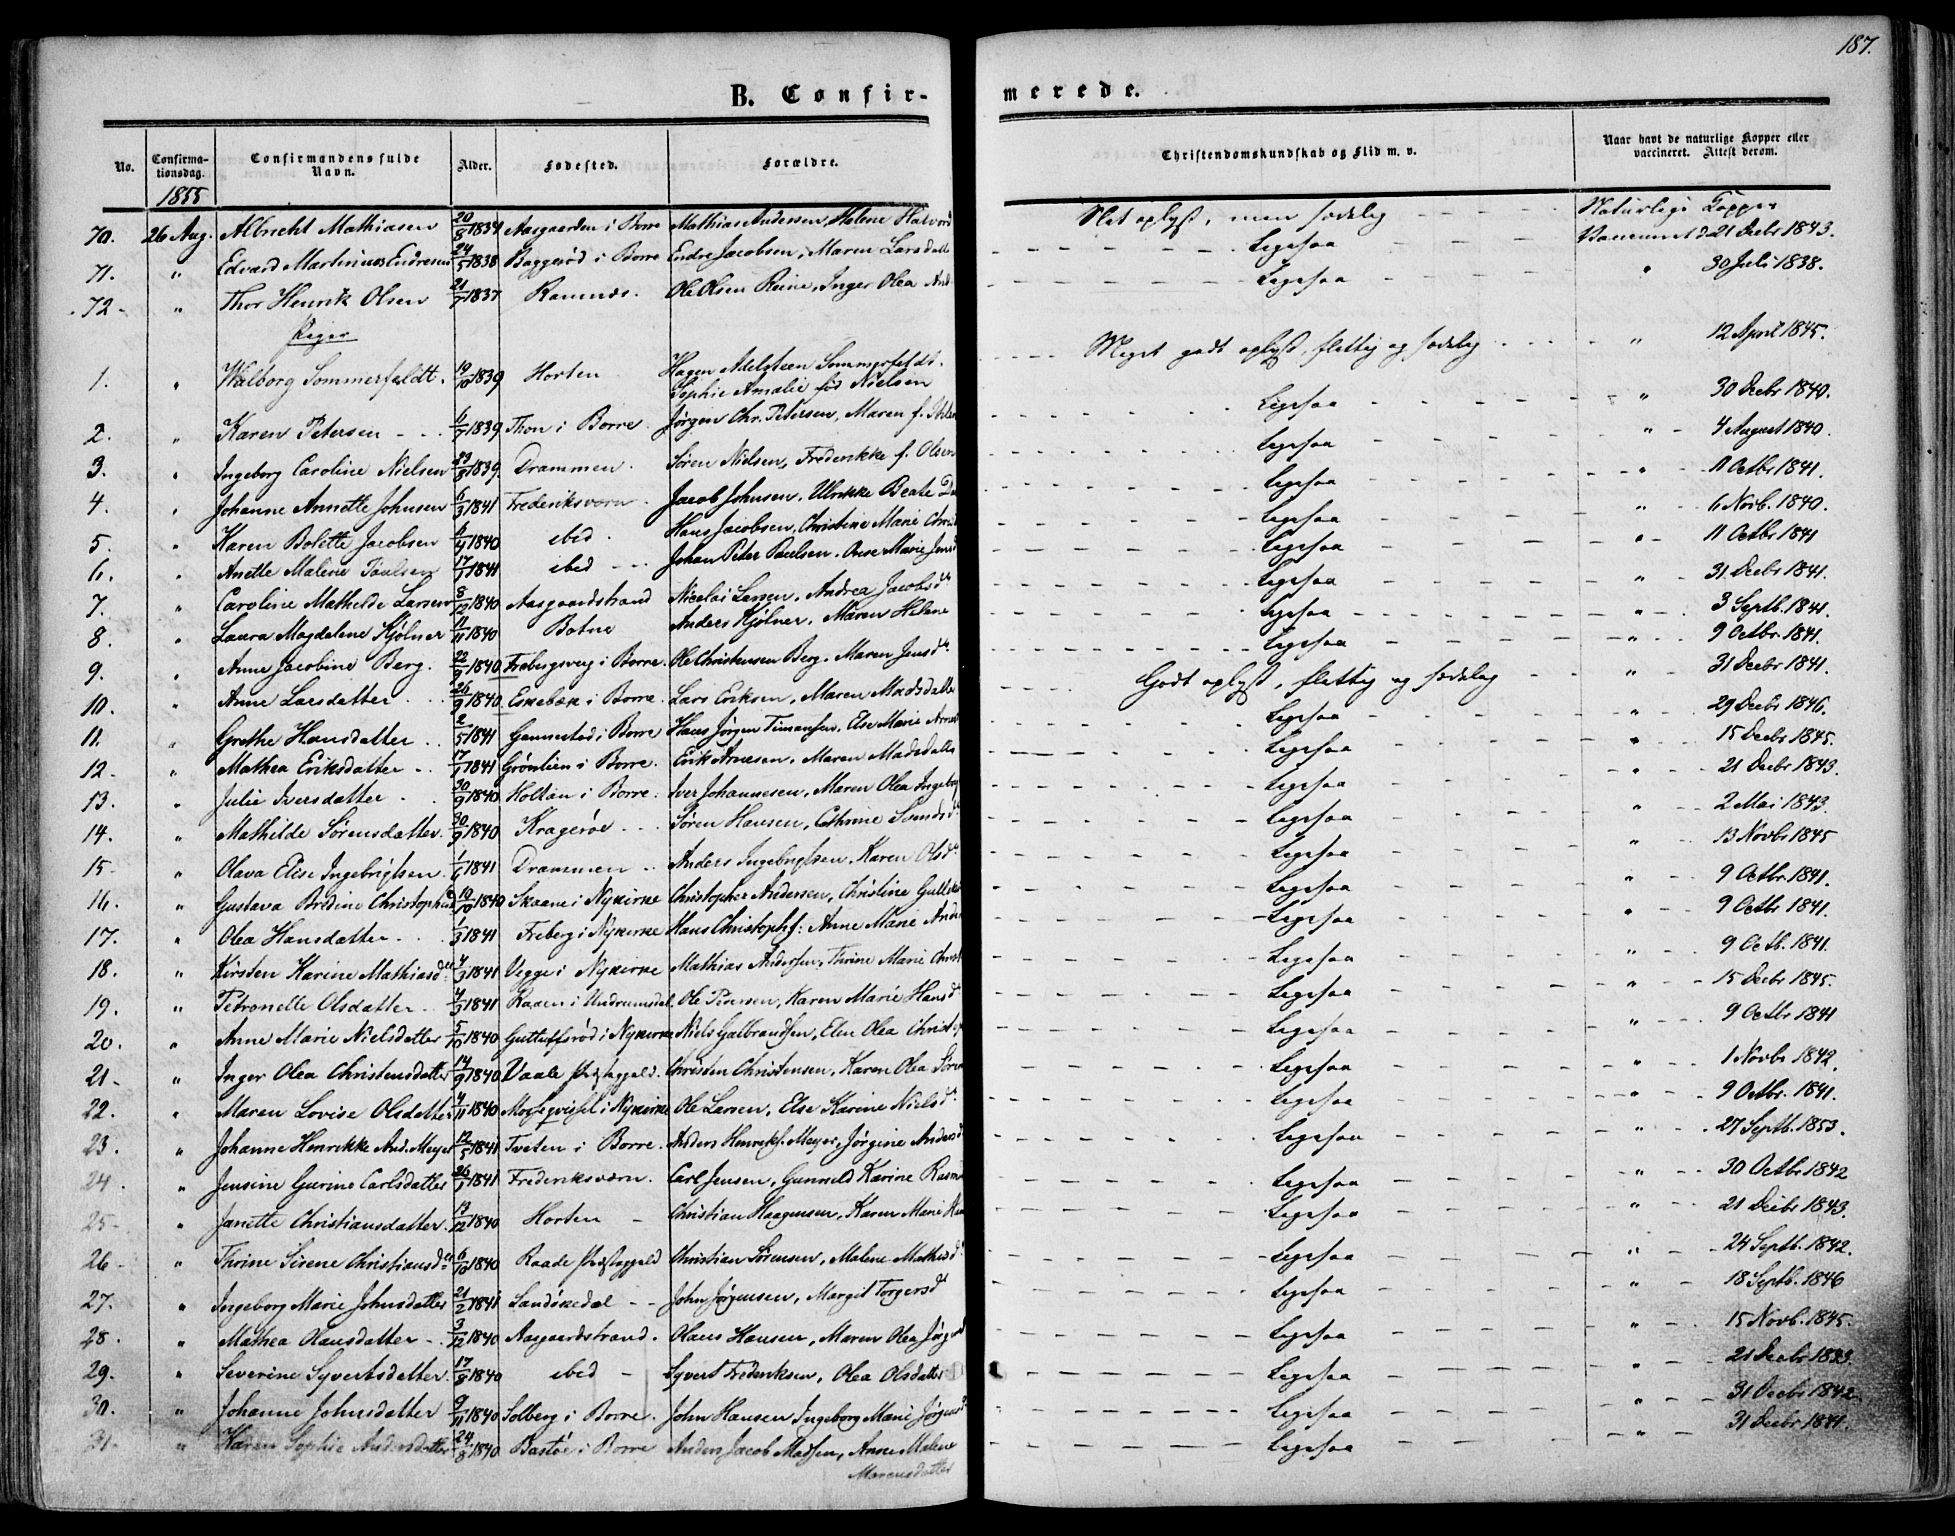 187.
B. Confirmerede.
No. | Confirmationsdag. | Confirmandens fulde Navn. | Alder. | Fødested. | Forældre. | Christendomskundskab og Flid m. v. | Naar havt de naturlige Kopper eller vaccineret. Attest derom.
1855
70. 26 Aug. Albrecht Mathiasen 20/8 1834 Aasgaarden i Borre Mathias Andersen, Helene Halvord Slet oplyst, men sædelig Naturlige Kopper
71. " Edvard Martinius Endresen 24/5 1838 Baggerød i Borre Endre Jacobsen, Maren Larsdatte Ligesaa Vaccineret d 21 Decbr 1843.
72 " Thor Henrik Olsen 21/7 1837 Ramnæs. Ole Olsen Reine, Inger Olea And Ligesaa " 30 Juli 1838.
Piger
1. " Walborg Sommerfeldt. 19/10 1839 Horten Hagen Adelsteen Sommerfeldt. Sophie Amalie fød Nielsen Meget godt oplyst, flittig og sædelig " 12 April 1845.
2. " Karen Petersen 6/7 1839 Thon i Borre. Jørgen Chr. Petersen, Maren f. Ligesaa " 30 Decbr 1840.
3. " Ingeborg Caroline Nielsen 23/8 1839. Drammen. Søren Nielsen, Frederikke f. Olsen Ligesaa " 4 August 1840.
4. " Johanne Annette Johnsen 6/3 1841 Frederiksværn. Jacob Johnsen, Ulrikke Beate Ligesaa " 11 Octbr 1841.
5. " Karen Bolette Jacobsen 6/4 1840 ibid. Hans Jacobsen, Christine Marie Ligesaa " 6 Novb. 1840.
6. " Anette Malene Paulsen 17/1 1841 ibid Johan Peter Paulsen, Anne Marie Jensd Ligesaa " 11 Octbr 1841
7. " Caroline Mathilde Larsen 8/12 1840 Aasgaardstrand Nicolai Larsen, Andrea Jacobsdr Ligesaa " 31 Decbr 1841.
8. " Laura Magdalene Kjølner 11/11 1840 Botne Anders Kjølner, Maren Helene Ligesaa " 3 Septb. 1841.
9. " Anne Jacobine Berg. 22/9 1840 Frebergsveg i Borre. Ole Christensen Berg. Maren Jensdr Ligesaa " 9 Octbr. 1841.
10. " Anne Larsdatter 26/9 1840. Esnebæk i Borre. Lars Eriksen, Maren Madsdatter Godt oplyst, flittig og sædelig " 31 Decbr 1841.
11. " Grethe Hansdatter 2/5 1841 Gannestad i Borre Hans Jørgen Timansen, Else Marie Ligesaa " 29 Decbr 1846.
12. " Mathea Eriksdatter 17/1 1841 Grønlien i Borre. Erik Arnesen, Maren Madsdatter Ligesaa " 15 Decbr 1845.
13. " Julie Iversdatter 30/9 1840 Holtan i Borre. Iver Johannesen, Maren Olea Ingebrig Ligesaa " 21 Decbr 1843.
14. " Mathilde Sørensdatter. 30/9 1840 Kragerøe Søren Hansen, Cathrine Svendsdr Ligesaa " 2 Mai 1843.
15 " Olava Elise Ingebrigtsen 1/6 1841 Drammen Anders Ingebrigtsen, Karen Olsdr Ligesaa " 13 Novbr 1845
16. " Gustava Bredine Christophersd 10/10 1840 Skaane i Nykirke Christopher Andersen, Christine Ligesaa " 9 Octbr. 1841.
17. " Olea Hansdatter 1/3 1841 Freberg i Nykirke Hans Christophf: Anne Marie Ander Ligesaa " 9 Octbr 1841.
18. " Kirsten Karine Mathiasdr 4/3 1841 Vegge i Nykirke Mathias Andersen, Thrine Marie Christ Ligesaa " 9 Octb. 1841.
19. " Petronelle Olsdatter 4/3 1841 Raaen i Undrumsdal. Ole Pedersen, Karen Marie Hansd Ligesaa " 15 Decbr 1845.
20. " Anne Marie Nielsdatter 5/10 1840 i Nykirke Niels Gulbrandsen, Elen Olea Christ Ligesaa " 9 Octbr 1841
21 " Inger Olea Christensdatter 14/9 1840 Vaale Præstegjeld. Christen Christensen, Karen Olea Søren Ligesaa " 1 Novbr 1842.
22. " Maren Lovise Olsdatter 4/11 1840 i Nykirke Ole Larsen, Else Karine Nielsdr Ligesaa " 9 Octbr. 1841.
23. " Johanne Henrikke And. Meyer 12/5 1841 Tveten i Borre. Anders Henrikf. Meyer, Jørgine Andersd Ligesaa " 27 Septb. 1853.
24. " Jensine Gurine Carlsdatter 26/1 1841 Frederiksværn. Carl Jensen, Gunnild Karine Rasm Ligesaa " 30 Octbr 1842
25 " Janette Christiansdatter 13/12 1840 Horten Christian Haagensen, Karen Marie Ligesaa " 21 Decbr 1843.
26 " Thrine Sirene Christiansdr 6/10 1840 Raade Præstegjeld Christian Sørensen, Malene Mathisd Ligesaa " 24 Septb. 1842.
27. " Ingeborg Marie Johnsdatter 21/2 1841 Sandøkedal John Jørgensen, Margit Torgersdr Ligesaa " 18 Septb. 1846
28. " Mathea Olausdatter 3/12 1840 Aasgaardstrand. Olaus Hansen, Maren Olea Ligesaa " 15 Novb. 1845.
29. " Severine Syvertsdatter 17/9 1840 ibid Syvert Frederiksen, Olea Olsdatter Ligesaa " 21 Decbr
30. " Johanne Johnsdatter 9/11 1840 Solberg i Borre. John Hansen Ingeborg Marie Jørgensd Ligesaa " 31 Decbr 1842
31. " Karen Sophie Andersdatter 24/8 1840 Bastøe i Borre Anders Jacob Madsen, Anne Malene Ligesaa " 31 Decbr 1841.
Marcusdatter